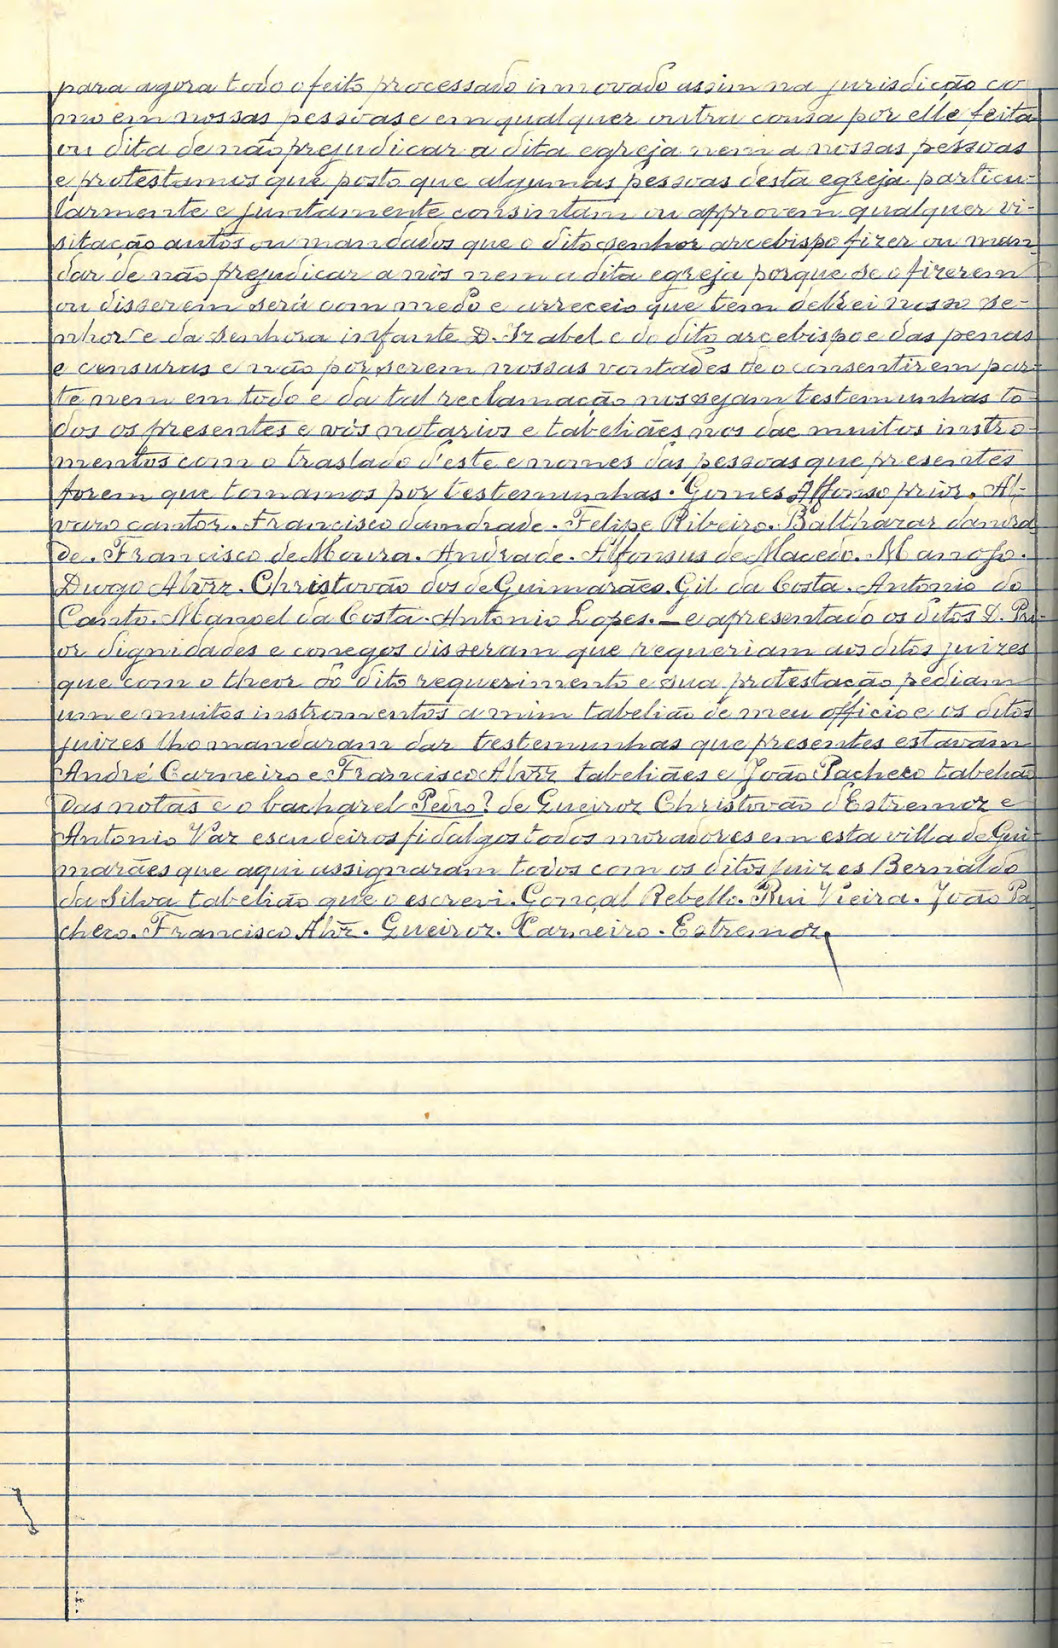 para agora todo o feito processado innovado assim na jurisdicão co
mo em nossas pessoas e em qualquer outra cousa por elle feita
ou dita de não prejudicar a dita egreja nem a nossas pessoas
e protestamos que posto que algumas pessoas desta egreja particu-
larmente e juntamente consintam ou approvem qualquer vi-
sitação autos ou mandados que o dito senhor arcebispo fizer ou man
dar de não prejudicar a nós nem a dita egreja porque se o fizerem
ou disserem será com medo e arreceio que tem delRei nosso se-
nhor e da senhora infante D. Izabel e do dito arcebispo e das penas
e censuras e não por serem nossas vontades de o consentirem par-
te nem em todo e da tal reclamação nos sejam testemunhas to-
dos os presentes e vós notarios e tabeliães nos dae muitos instro-
mentos com o traslado d'este e nomes das pessoas que presentes
forem que tomamos por testemunhas. Gomes Affonso prior. Al-
varo cantor. Francisco dandrade. Felipe Ribeiro. Balthazar dandra
de. Francisco de Moura. Andrade. Alfonsus de Macedo. M.
Diogo Alvrz. Christovão dos de Guimarães. Gil da Costa. Antonio do
Canto. Manoel da Costa. Antonio Lopes. — e apresentado os ditos D. Pri-
or dignidades e conegos disseram que requeriam aos ditos juizes
que com o theor do dito requerimento e sua protestação pediam
um e muitos instromentos a mim tabelião de meu officio e os ditos
juizes lho mandaram dar testemunhas que presentes estavam
André Carneiro e Francisco Alvrz tabeliães e João Pacheco tabelião
das notas e o bacharel Pedro? de Gueiroz Christovão d'Estremoz e
Antonio Vaz escudeiros fidalgos todos moradores em esta villa de Gui-
marães que aqui assignaram todos com os ditos juizes Bernaldo
da Silva tabelião que o escrevi. Gonçal Rebello. Rui Vieira. João Pa-
checo. Francisco Alvrz. Gueiroz. Carneiro. Estremoz.